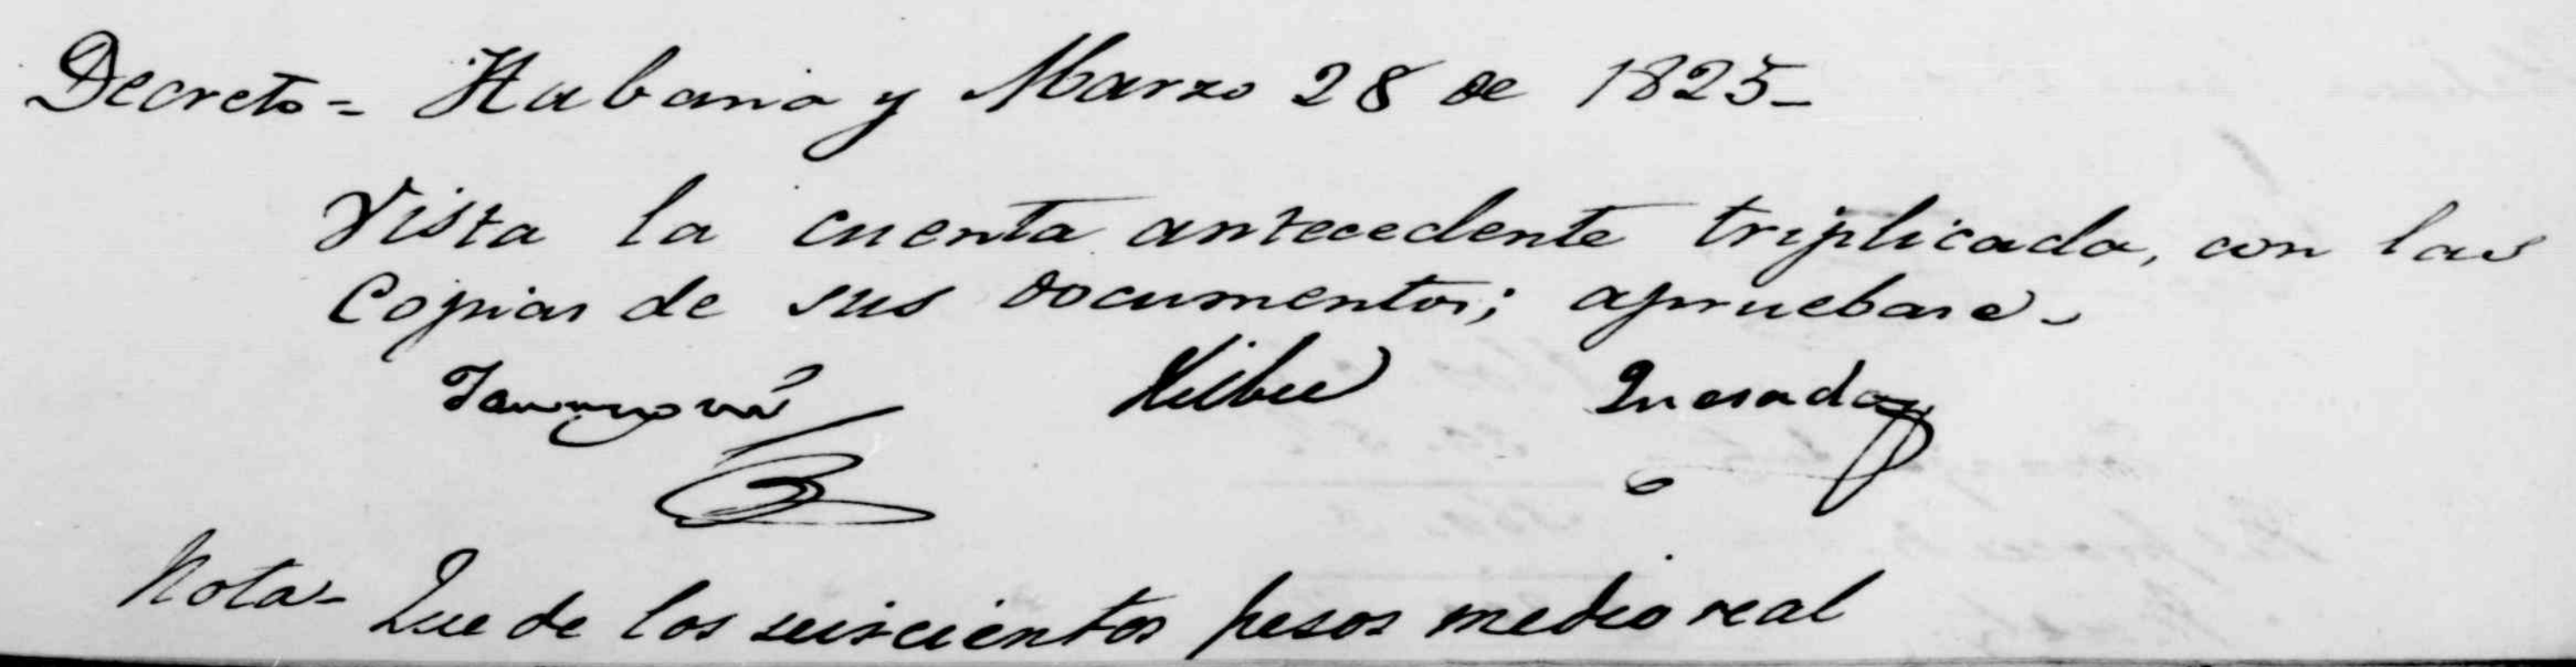 Decreto= Habana y Marzo 28 de 1825-
Vista la cuenta antecedente triplicada, con las
Copias de sus documentos; apruebase-
Quesada
Nota- Que de los seiscientos pesos medio real